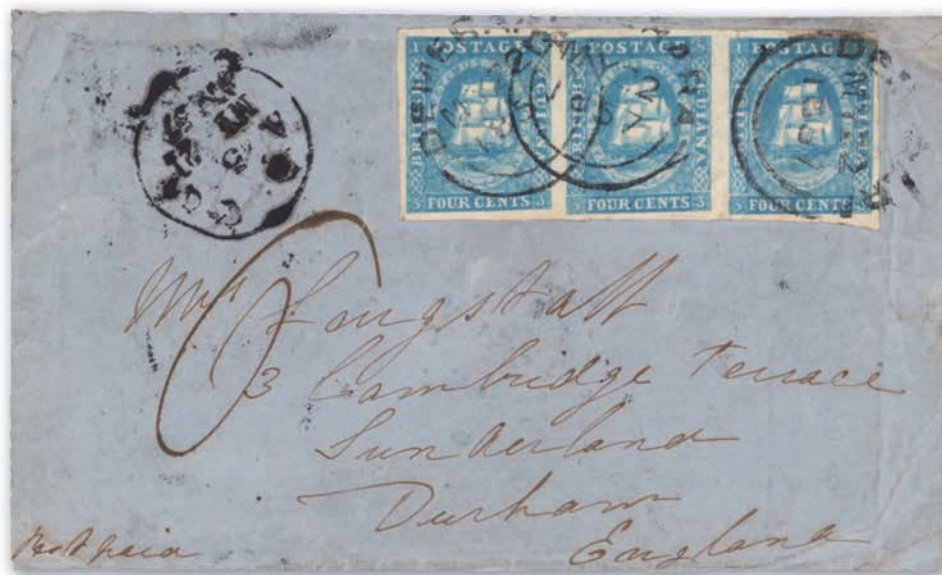 1 POSTAGE 8
BRITISH GUIANA
5 FOUR CENTS 3
1 POSTAGE 8
BRITISH GUIANA
5 FOUR CENTS 3
1 POSTAGE 8
BRITISH GUIANA
5 FOUR CENTS 3
DEMERARA
Mrs Longstaff
3 Cambridge Terrace
Sunderland
Durham
England
Post paid